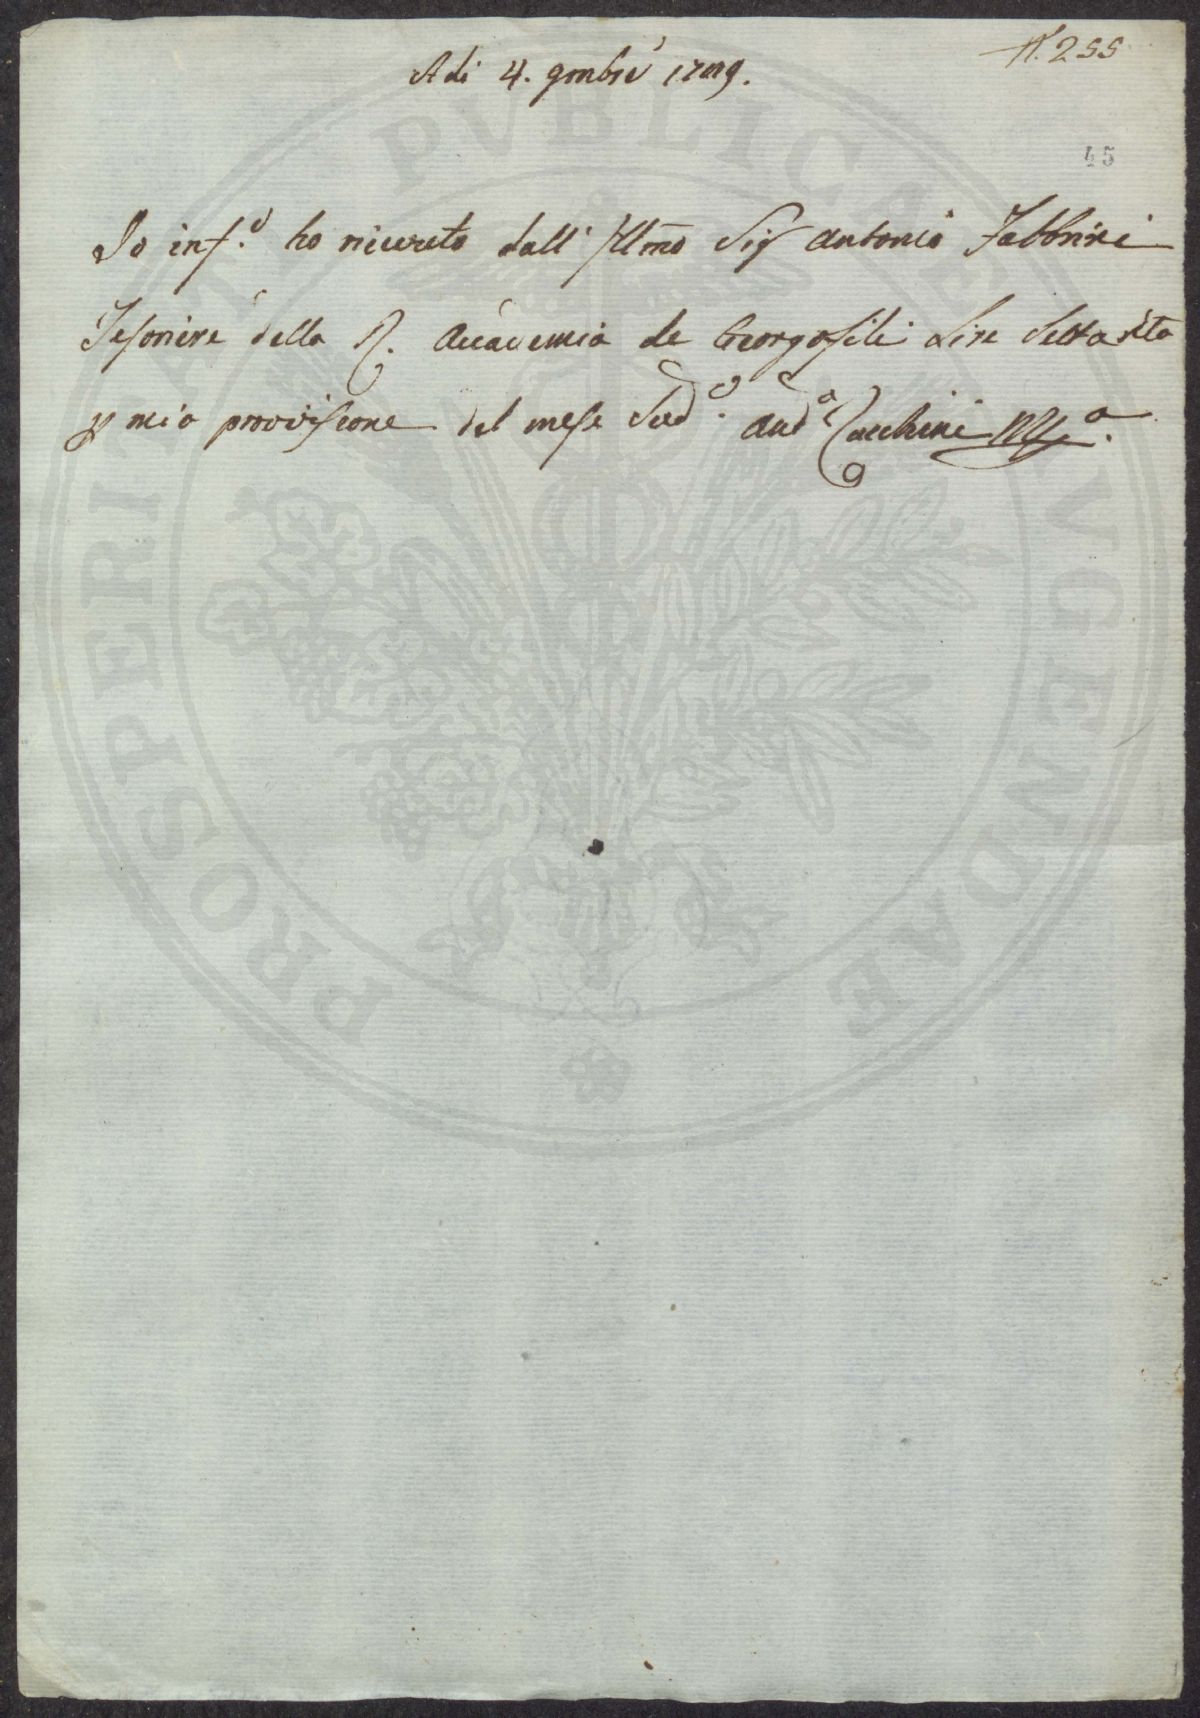 N. 255
Adi 4. 9mbre 1789.
45
Io inf.o ho ricevuto dall' Illmo Sig Antonio Fabbrini
Tesoriere della R. Accademia de Georgofili Lire Settanta
p mia provvisione del mese Sud.o And.a Zucchini M.o P.a
PROSPERITATI PUBLICAE AUGENDAE